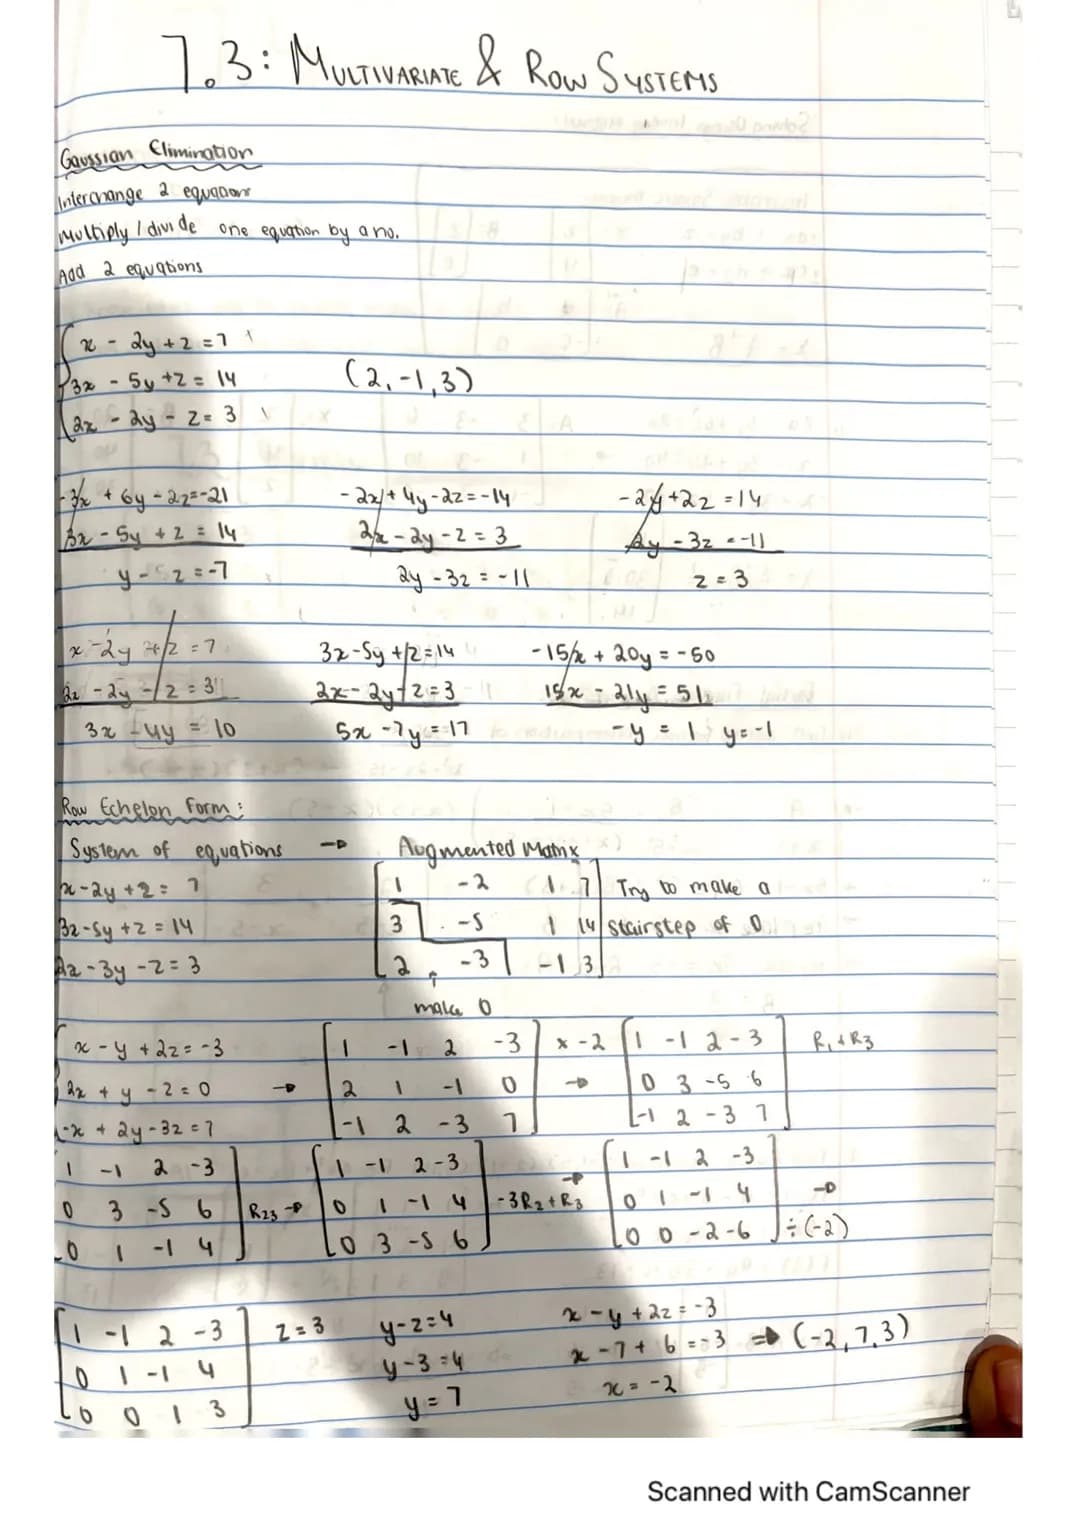 7.3: MULTIVARIATE & ROW SYSTEMS
Gaussian Elimination
Interchange 2 equations
Multiply / divide one equation by a no.
Add 2 equations
x - 2y + z = 7
3x - 5y + z = 14 (2, -1, 3)
2x - 2y - z = 3
-3x + 6y - 2z = -21 -2x + 4y - 2z = -14 -2y + 2z = 14
3x - 5y + z = 14 2x - 2y - z = 3 2y - 3z = -11
y - 2z = -7 2y - 3z = -11 z = 3
x - 2y + z = 7 3x - 5y + z = 14 -15x + 20y = -50
2x - 2y - z = 3 2x - 2y - z = 3 15x - 21y = 51
3x - 4y = 10 5x - 7y = 17 -y = 1 y = -1
Row Echelon Form:
System of equations → Augmented Matrix
x - 2y + z = 7 1 -2 1 7 Try to make a
3x - 5y + z = 14 3 -5 1 14 stairstep of 0
2x - 3y - z = 3 2 -3 -1 3
make 0
x - y + 2z = -3 1 -1 2 -3 x -2 1 -1 2 -3 R1 + R3
2x + y - z = 0 → 2 1 -1 0 → 0 3 -5 6
-x + 2y - 3z = 7 -1 2 -3 7 -1 2 -3 7
1 -1 2 -3 1 -1 2 -3 → 1 -1 2 -3
0 3 -5 6 R23 → 0 1 -1 4 -3R2 + R3 0 1 -1 4 →
0 1 -1 4 0 3 -5 6 0 0 -2 -6 ÷ (-2)
1 -1 2 -3 z = 3 y - z = 4 x - y + 2z = -3
0 1 -1 4 y - 3 = 4 x - 7 + 6 = -3 ⇒ (-2, 7, 3)
0 0 1 3 y = 7 x = -2
Scanned with CamScanner